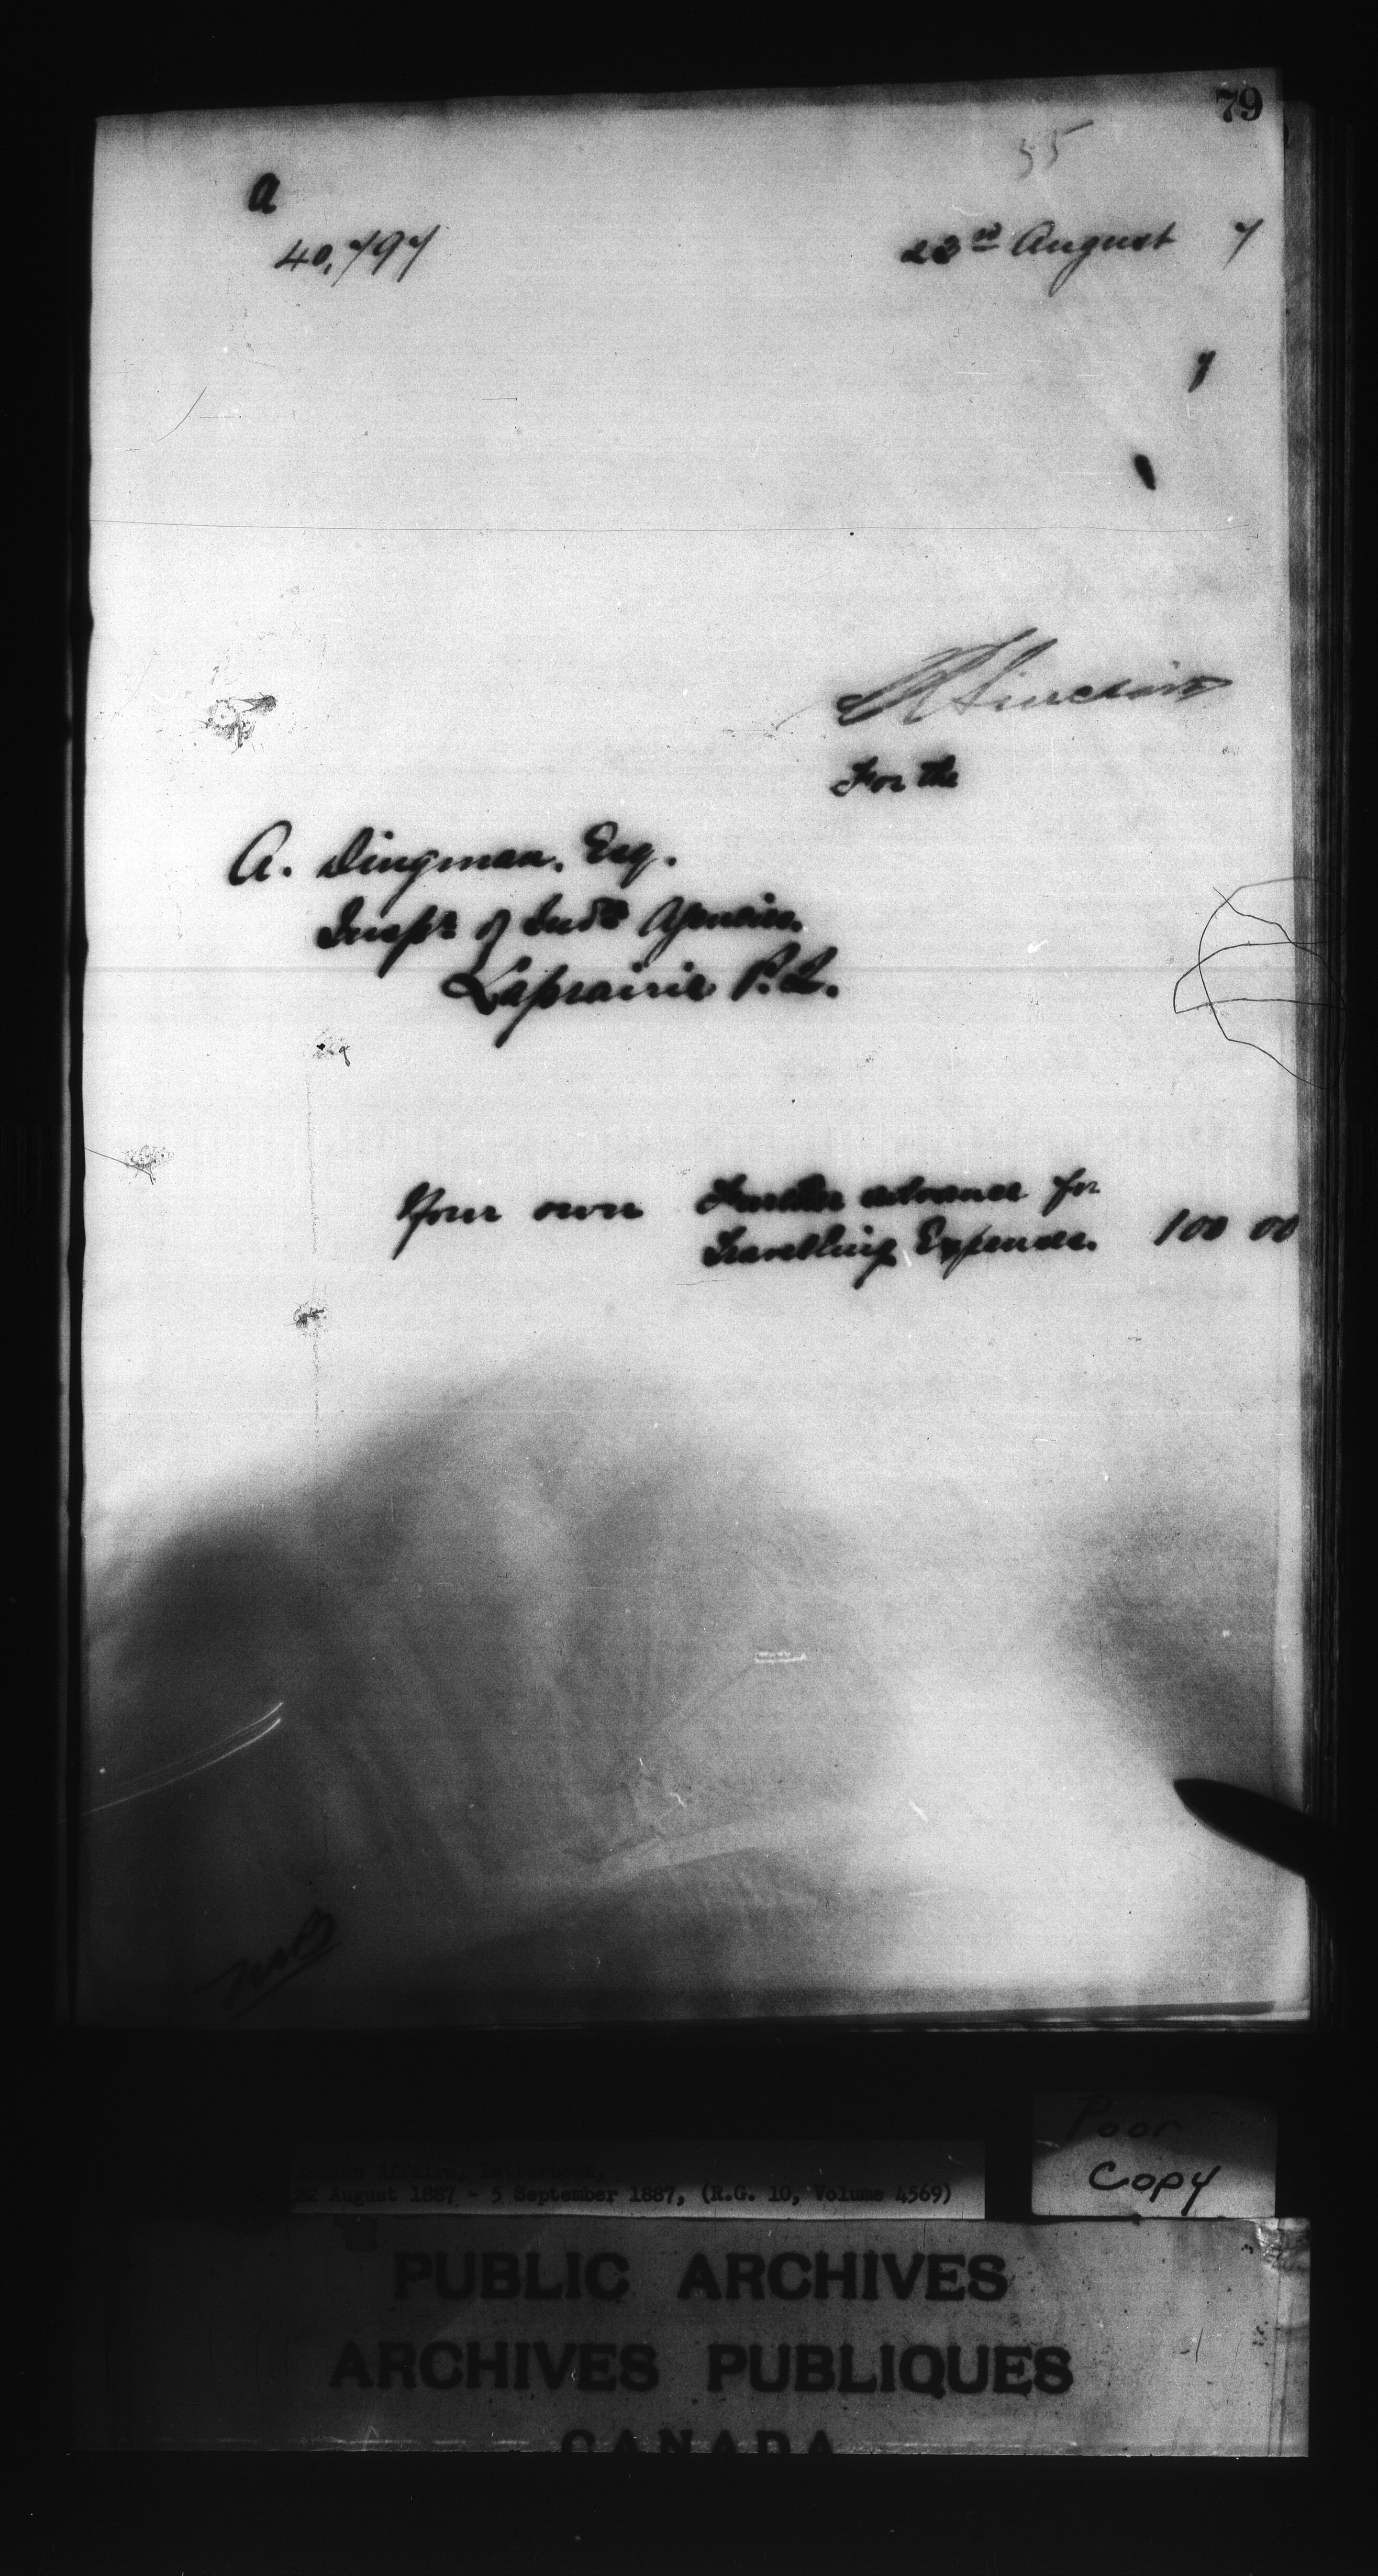 79
55
a
40,797 23rd August 7
1
R Sinclair
For the
A. Dingman. Esq.
Inspr of Inds Agencies.
Laprairie P.Q.
Your own Further advance for
Travelling Expenses. 100 00
Indian Affairs, Letterbook,
22 August 1887 - 5 September 1887, (R.G. 10, Volume 4569)
Poor
Copy
PUBLIC ARCHIVES
ARCHIVES PUBLIQUES
CANADA